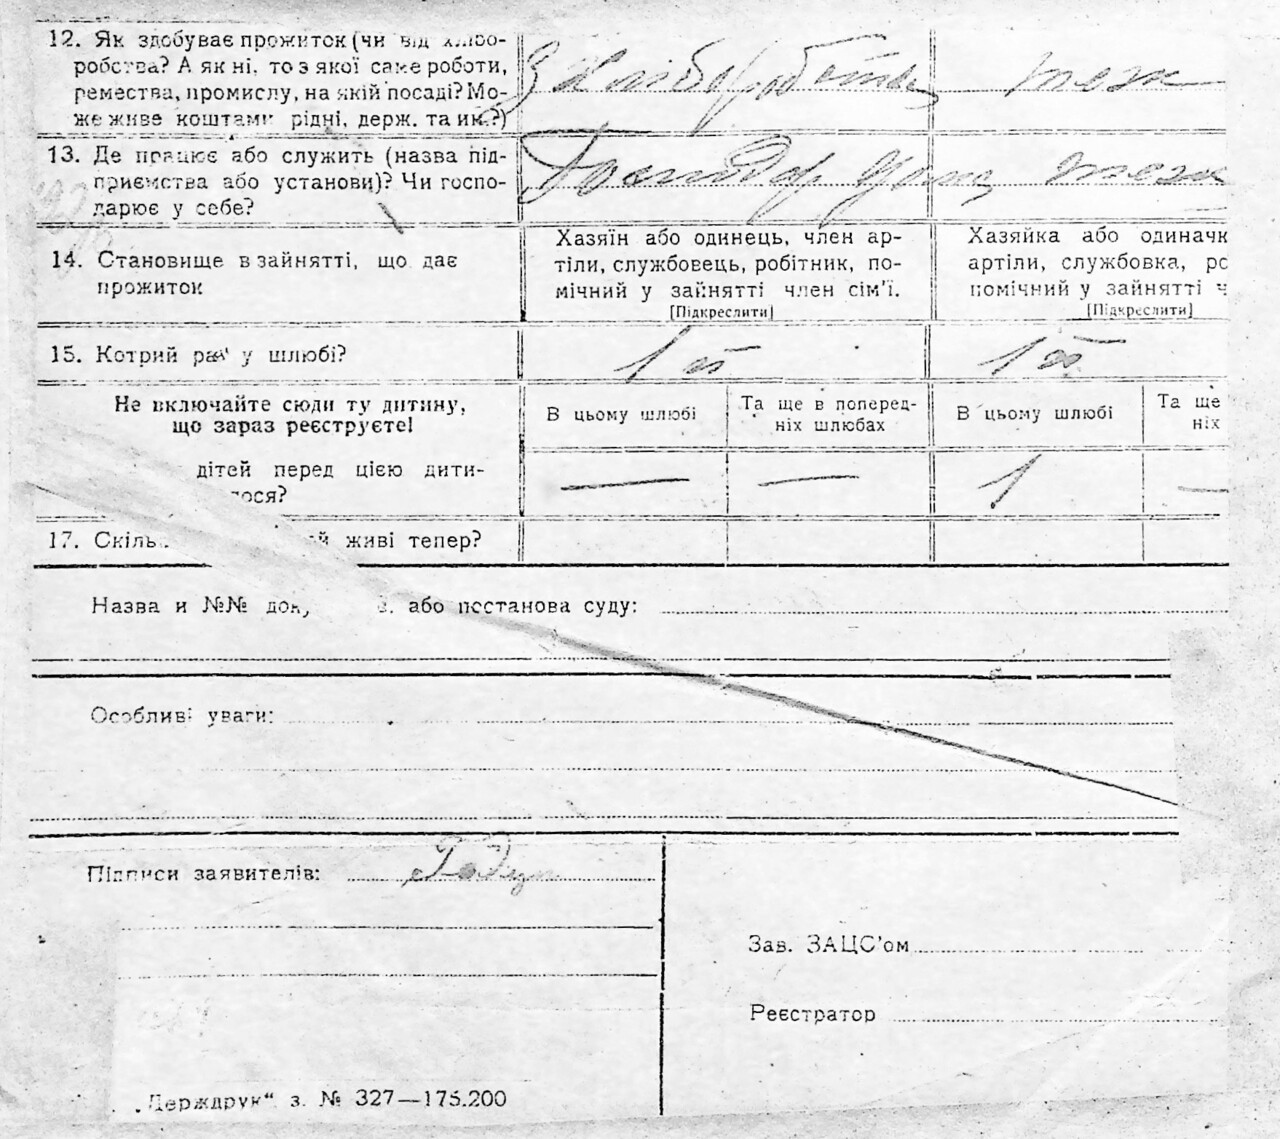 12. Як здобуває прожиток (чи від хлібо-
робства? А як ні, то з якої саме роботи,
ремества, промислу, на якій посаді? Мо-
же живе коштами рідні, держ. та ин.?)
З Хліборобства теж
13. Де працює або служить (назва під-
приємства або установи)? Чи госпо-
дарює у себе?
Господар дома теж
14. Становище в зайнятті, що дає
прожиток
Хазяїн або одинець, член ар-
тіли, службовець, робітник, по-
мічний у зайнятті член сім'ї.
[Підкреслити]
Хазяйка або одиначк
артіли, службовка, ро
помічний у зайнятті ч
[Підкреслити]
15. Котрий раз у шлюбі?
1 й 1 й
Не включайте сюди ту дитину,
що зараз реєструєте!
В цьому шлюбі
Та ще в поперед-
ніх шлюбах
В цьому шлюбі
Та ще
ніх
дітей перед цією дити-
лося?
— — 1 —
17. Скіль й живі тепер?
Назва и №№ док в. або постанова суду:
Особливі уваги:
Підписи заявителів:
Зав. ЗАЦС'ом
Реєстратор
„Держдрук“ з. № 327—175.200